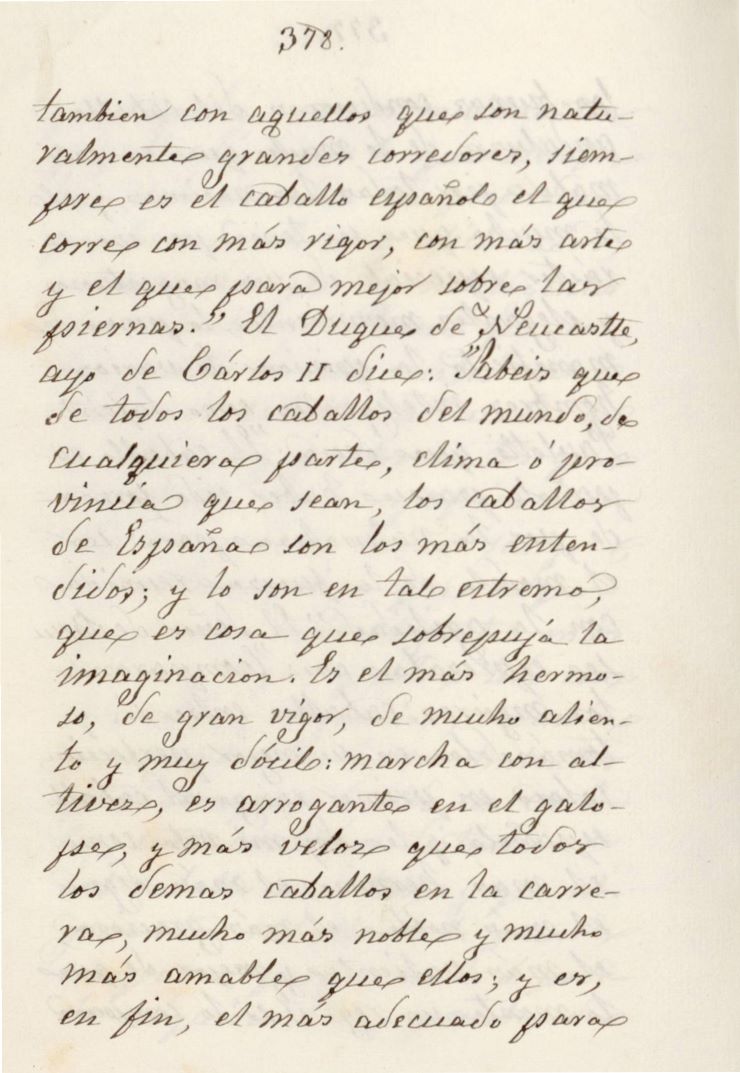 378.
tambien con aquellos que son natu-
ralmente grandes corredores, siem-
pre es el caballo español el que
corre con más rigor, con más arte
y el que para mejor sobre las
piernas." El Duque de Neucastle,
ayo de Cárlos II dice: "Sabeis que
de todos los caballos del mundo, de
cualquiera parte, clima ó pro-
vincia que sean, los caballos
de España son los más enten-
didos; y lo son en tal estremo,
que es cosa que sobrepujá la
imaginacion. Es el más hermo-
so, de gran vigor, de mucho alien-
to y muy dócil: marcha con al-
tivez, es arrogante en el galo-
pe, y más veloz que todos
los demas caballos en la carre-
ra, mucho más noble y mucho
más amable que ellos; y es,
en fin, el más adecuado para